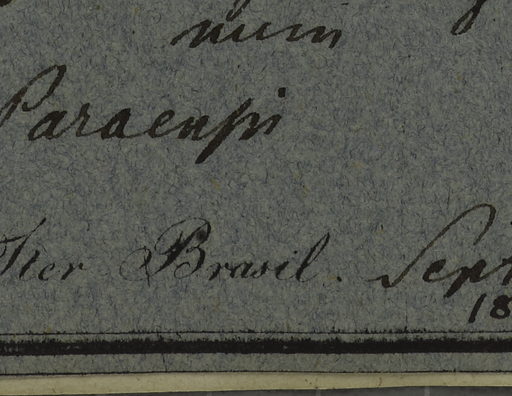 num
Paraensi
Iter Brasil. Sept
18